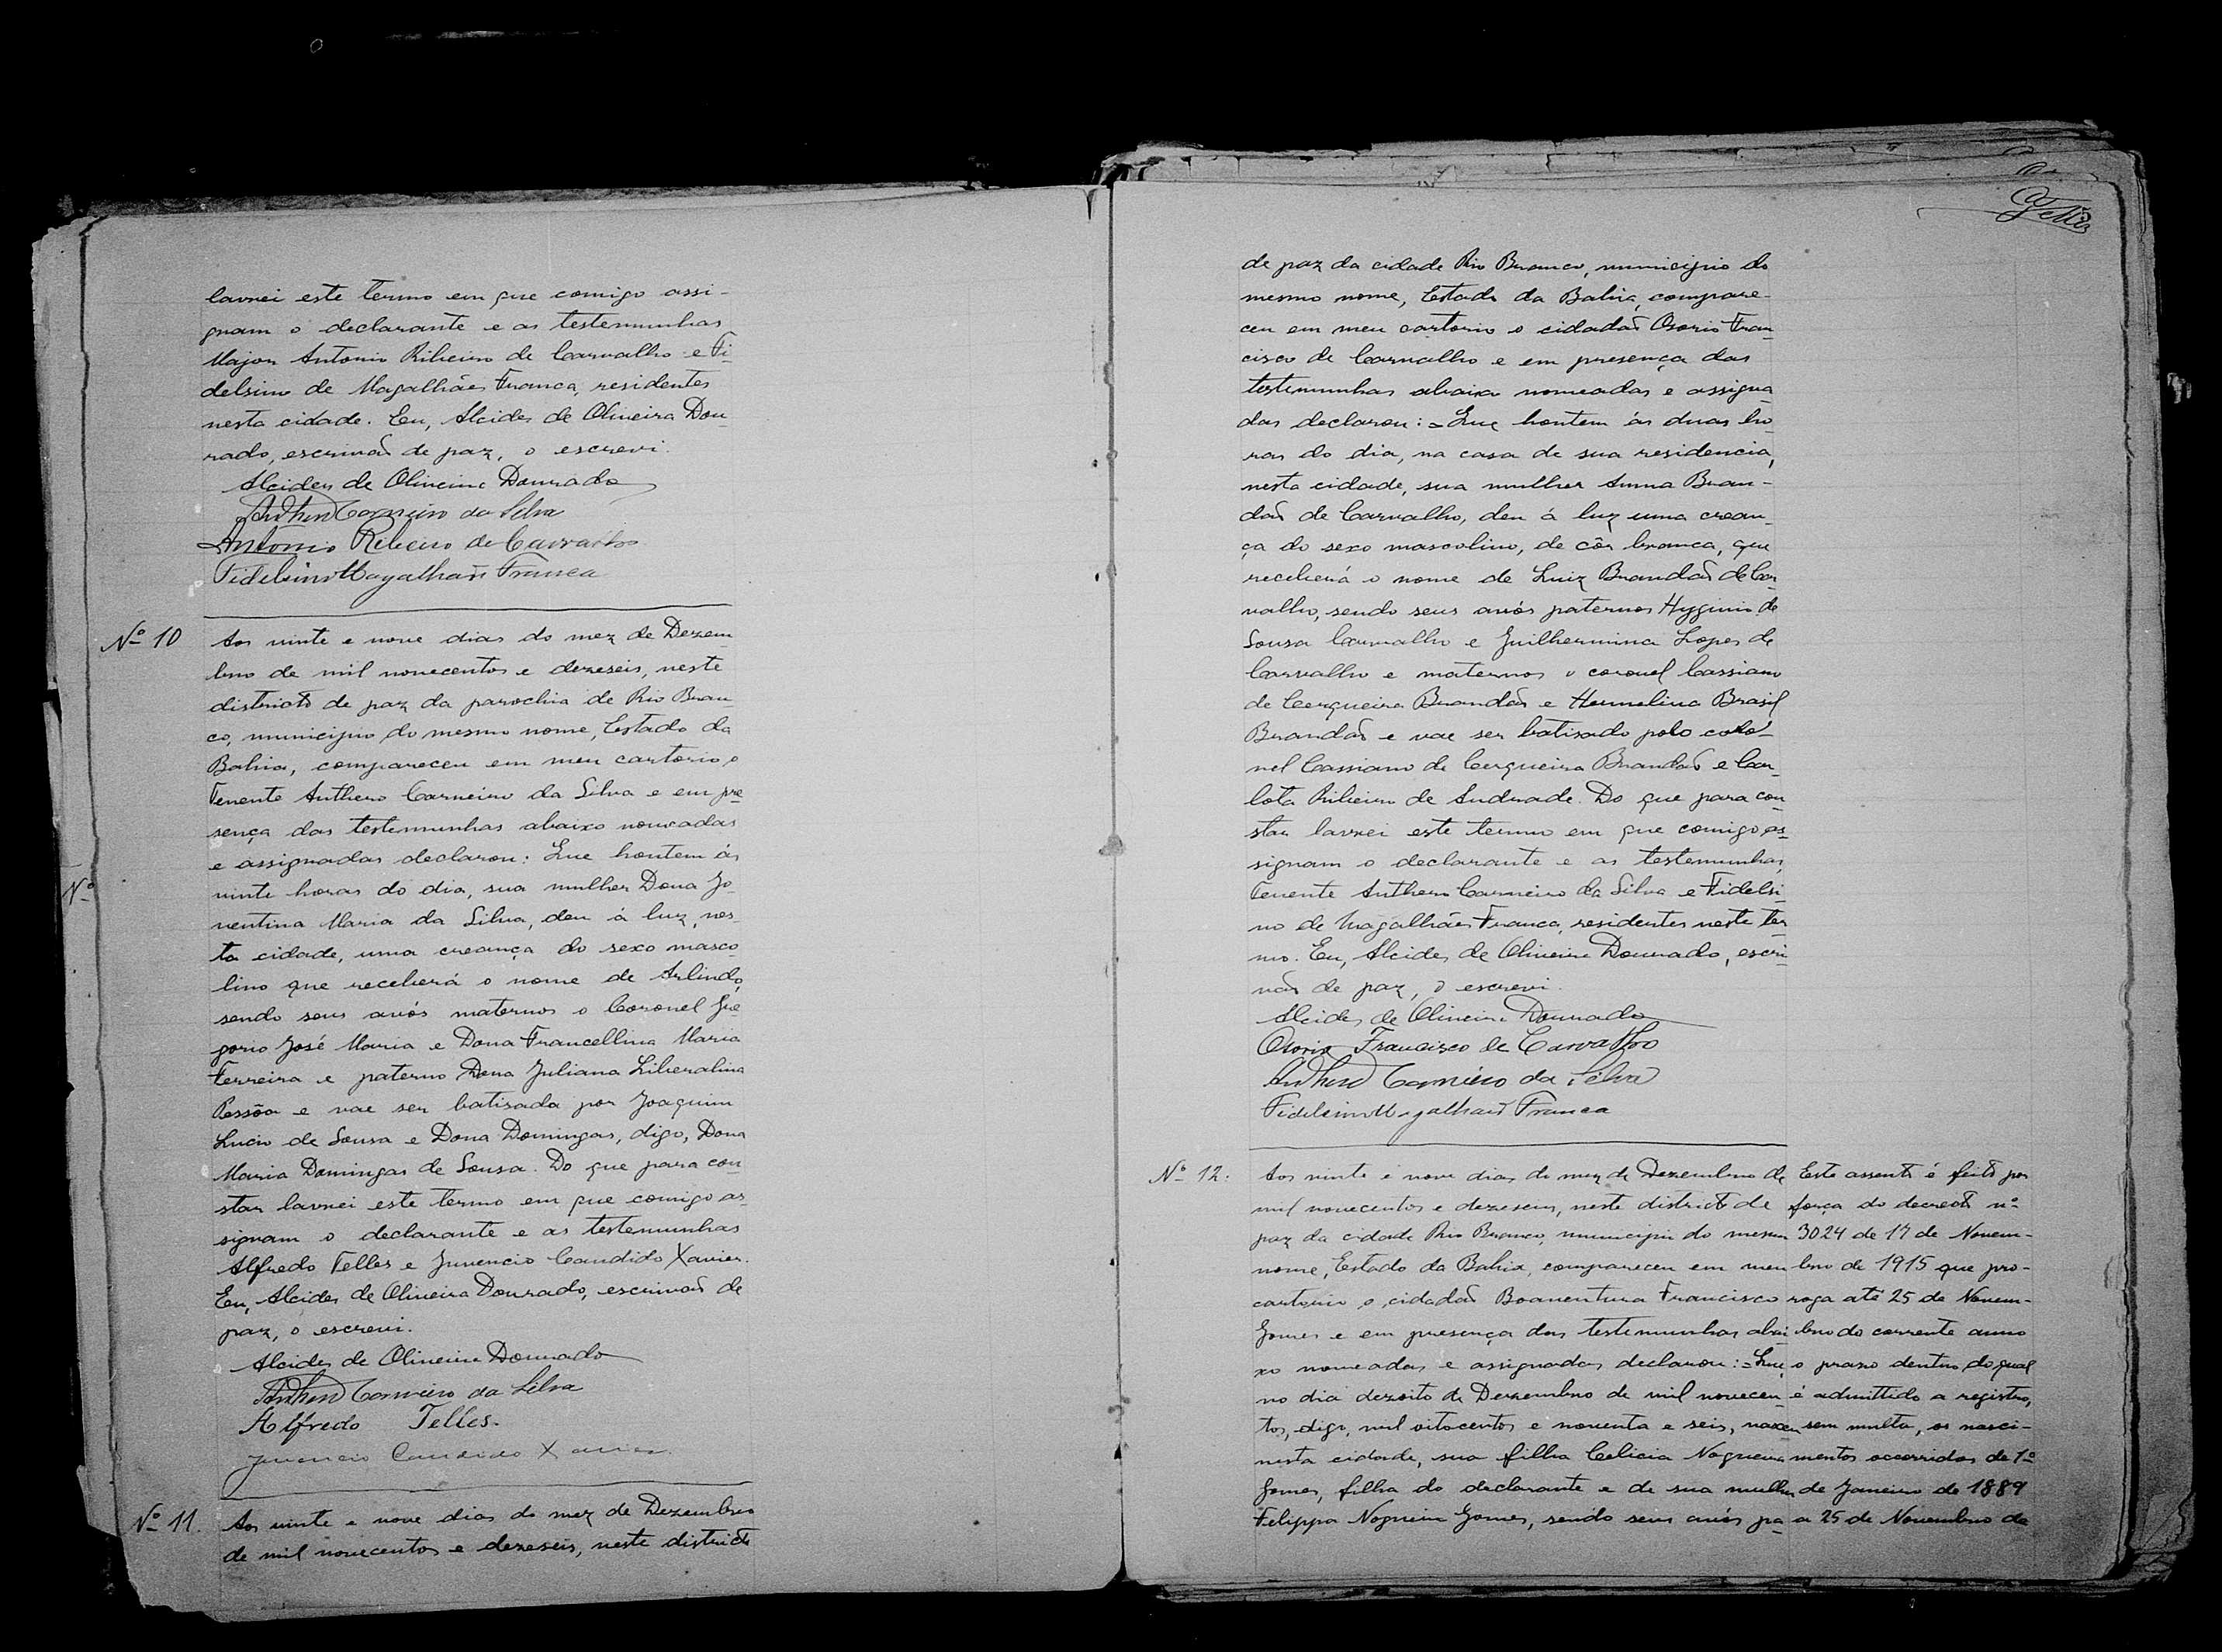 lavrei este termo em que comigo assi-
gnam o declarante e as testemunhas
Major Antonio Ribeiro de Carvalho e Fi-
delsino de Magalhães Franca, residentes
nesta cidade. Eu, Alcides de Oliveira Dou-
rado, escrivão de paz, o escrevi.
Alcides de Oliveira Dourado
Anthero Carneiro da Silva
Antonio Ribeiro de Carvalho
Fidelsino Magalhães Franca
Nº 10
Aos vinte e nove dias do mez de Dezem
bro de mil novecentos e dezeseis, neste
districto de paz da parochia de Rio Bran-
co, municipio do mesmo nome, Estado da
Bahia, compareceu em meu cartorio, o
Tenente Anthero Carneiro da Silva e em pre
sença das testemunhas abaixo nomeadas
e assignadas declarou: Que hontem ás
vinte horas do dia, sua mulher Dona Jo-
ventina Maria da Silva, deu á luz, nes-
ta cidade, uma creança do sexo masco
lino que receberá o nome de Arlindo,
sendo seus avós maternos o Coronel Gre
gorio José Maria e Dona Francellina Maria
Ferreira e paterno Dona Juliana Liberalina
Pessôa e vae ser batisada por Joaquim
Lucio de Sousa e Dona Domingas, digo, Dona
Maria Domingas de Sousa. Do que para con
star lavrei este termo em que comigo as-
signam o declarante e as testemunhas
Alfredo Telles e Juvencio Candido Xavier.
Eu, Alcides de Oliveira Dourado, escrivão de
paz, o escrevi.
Alcides de Oliveira Dourado
Anthero Carneiro da Silva
Alfredo Telles.
Juvencio Candido Xavier.
Nº 11.
Aos vinte e nove dias do mez de Dezembro
de mil novecentos e dezeseis, neste districto
Nº
Telles
de paz da cidade Rio Branco, municipio do
mesmo nome, Estado da Bahia, compare-
ceu em meu cartorio o cidadão Osorio Fran
cisco de Carvalho e em presença das
testemunhas abaixo nomeadas e assigna
das declarou: = Que hontem ás duas ho-
ras do dia, na casa de sua residencia,
nesta cidade, sua mulher Anna Bran-
dão de Carvalho, deu á luz uma crean-
ça do sexo mascolino, de côr branca, que
receberá o nome de Luiz Brandão de Car
valho, sendo seus avós paternos Hyginio de
Sousa Carvalho e Guilhermina Lopes de
Carvalho e maternos o coronel Cassiano
de Cerqueira Brandão e Hermelina Brasil
Brandão e vae ser batisado pelo coro-
nel Cassiano de Cerqueira Brandão e Car-
lota Ribeiro de Andrade. Do que para con
star lavrei este termo em que comigo as-
signam o declarante e as testemunhas,
Tenente Anthero Carneiro da Silva e Fidelsi-
no de Magalhães Franca, residentes neste ter
mo. Eu, Alcides de Oliveira Dourado, escri-
vão de paz, o escrevi.
Alcides de Oliveira Dourado
Osorio Francisco de Carvalho
Anthero Carneiro da Silva
Fidelsino Magalhães Franca
Nº 12.
Aos vinte e nove dias do mez de Dezembro de
mil novecentos e dezeseis, neste districto de
paz da cidade Rio Branco, municipio do mesmo
nome, Estado da Bahia, compareceu em meu
cartorio, o cidadão Boaventura Francisco
Gomes e em presença das testemunhas abai
xo nomeadas e assignadas declarou: = Que
no dia dezoito de Dezembro de mil novecen
tos, digo, mil oitocentos e noventa e seis, nasceu
nesta cidade, sua filha Celicia Nogueira
Gomes, filha do declarante e de sua mulher
Felippa Nogueira Gomes, sendo seus avós pa-
Este assento é feito por
força do decreto nº
3024 de 17 de Novem-
bro de 1915 que pro-
roga até 25 de Novem-
bro do corrente anno
o praso dentro do qual
é admittido a registro,
sem multa, os nasci-
mentos occorridos de 1º
de Janeiro de 1889
a 25 de Novembro de